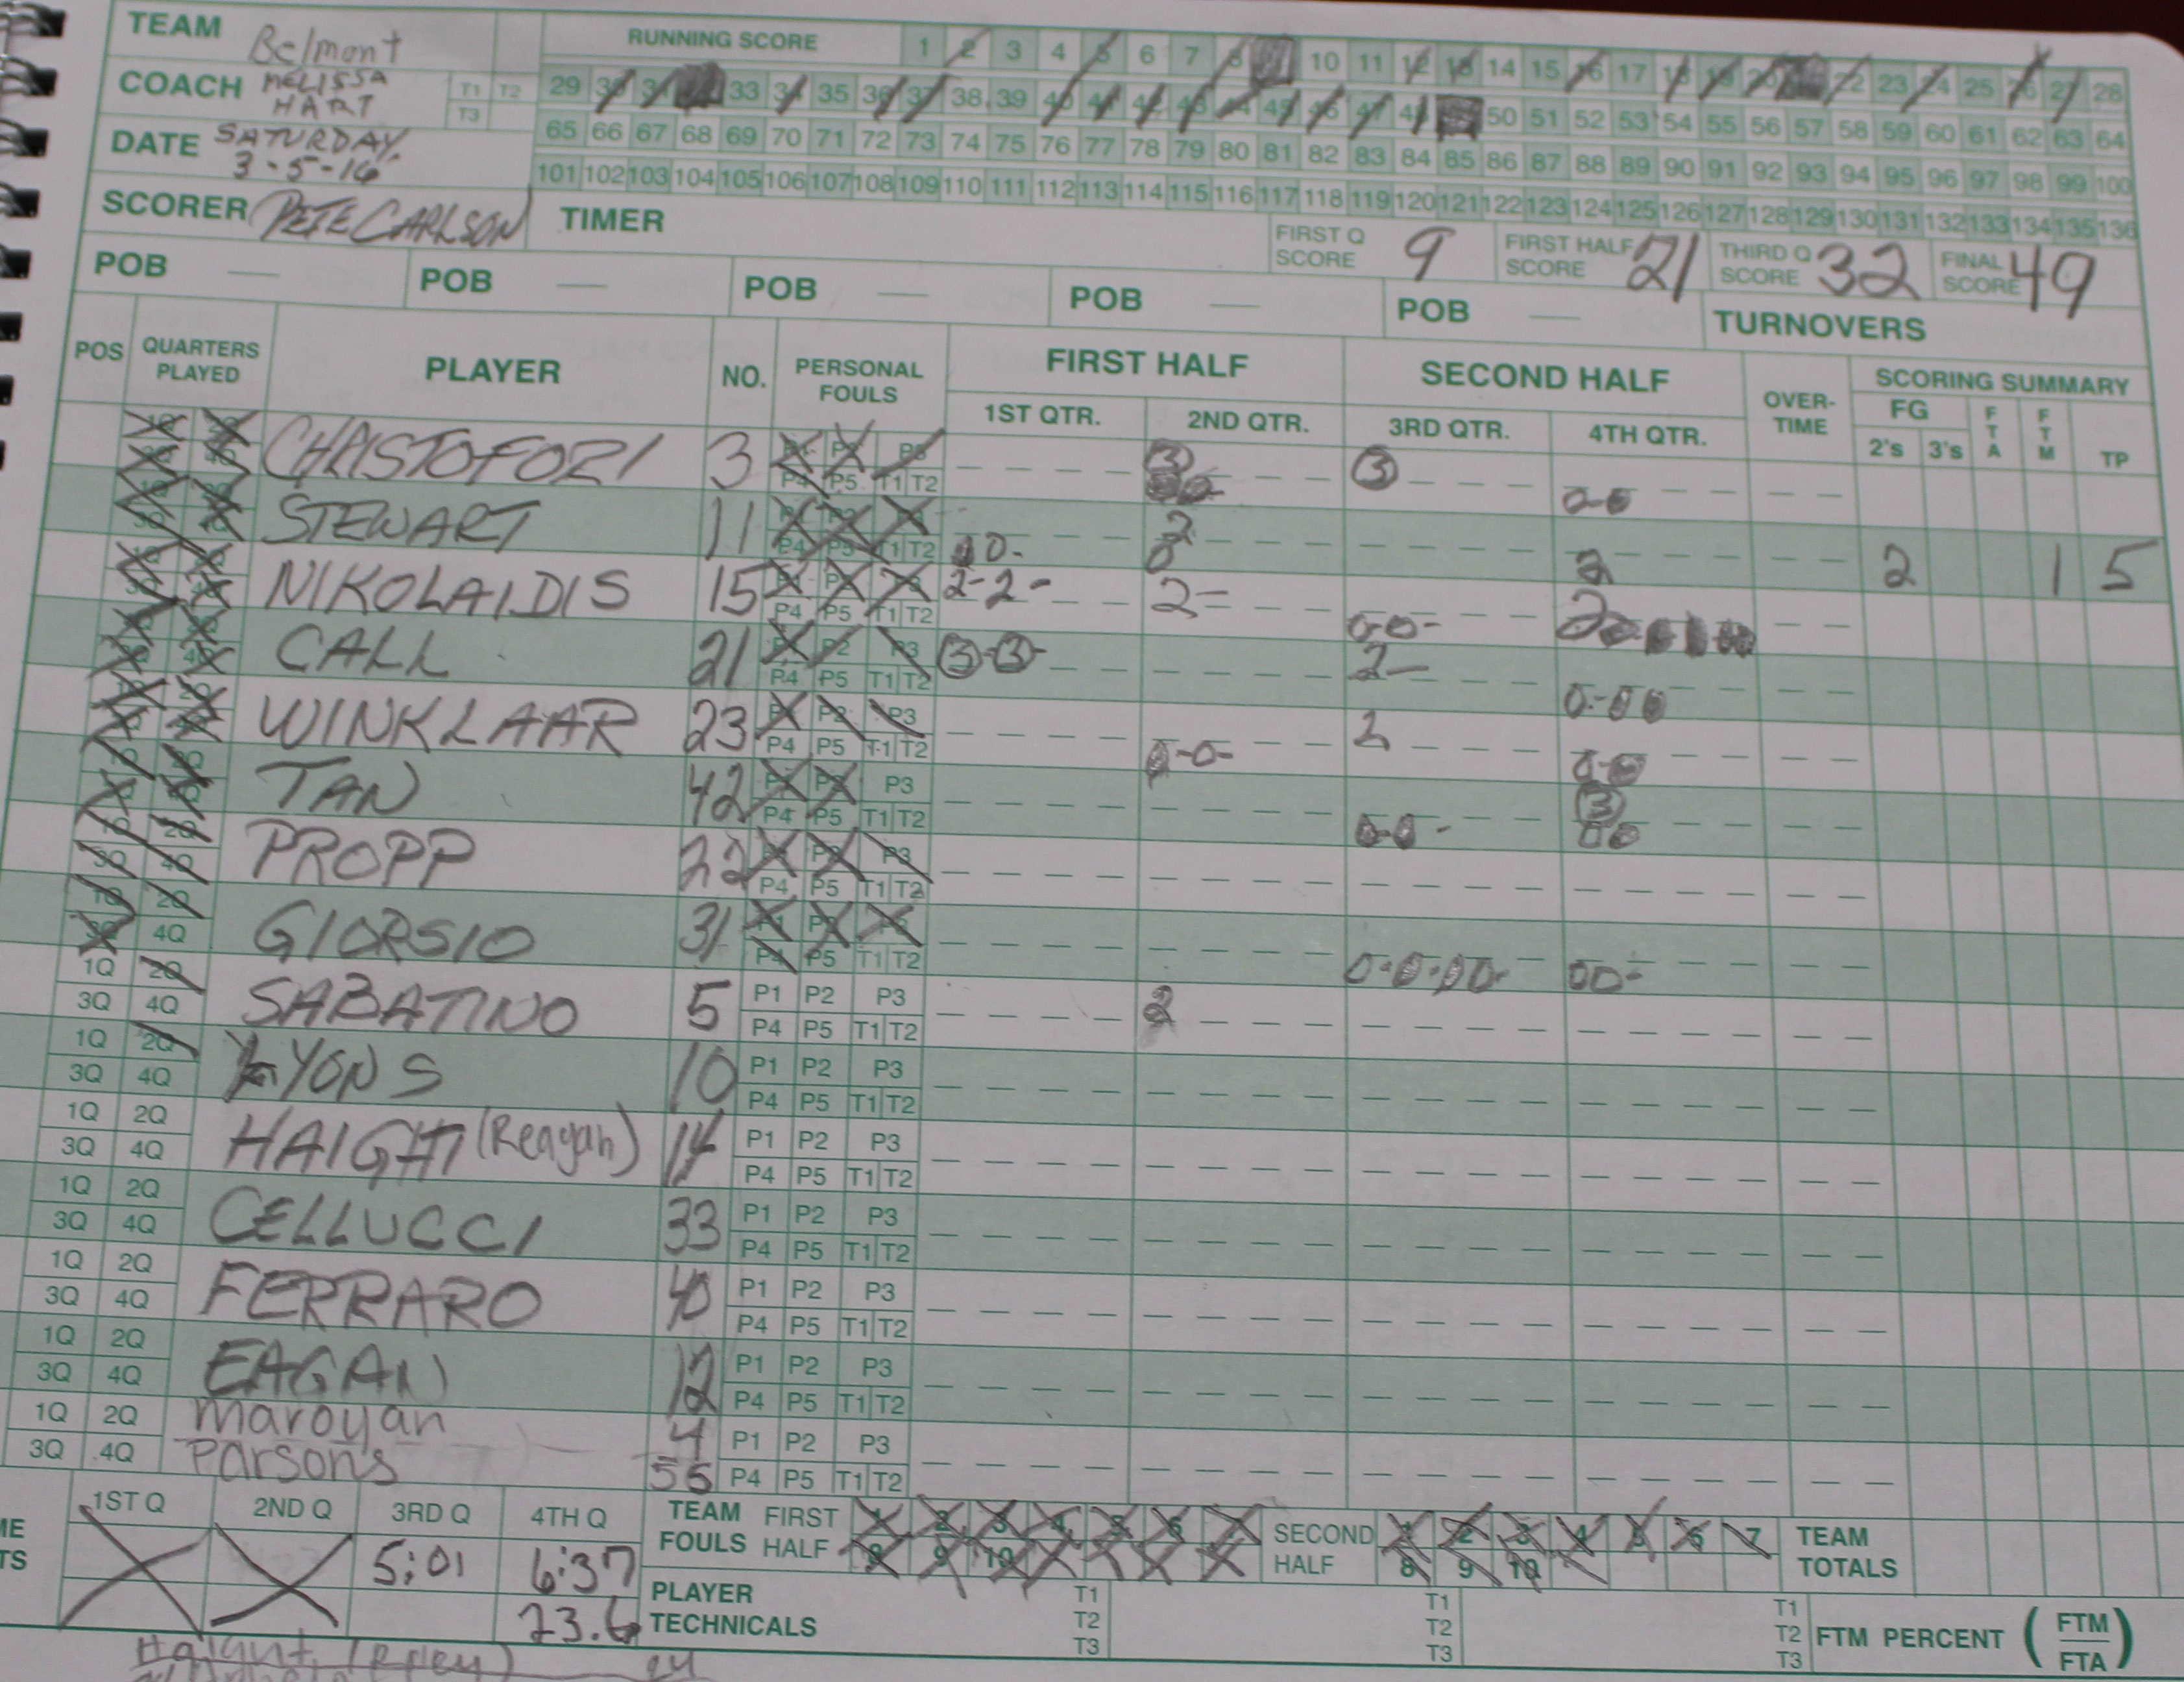 TEAM Belmont RUNNING SCORE 1 2 3 4 5 6 7 8 10 11 12 13 14 15 16 17 18 19 20 22 23 24 25 26 27 28
COACH MELISSA HART T1 T2 T3 29 30 31 33 34 35 36 37 38 39 40 41 42 43 44 45 46 47 48 50 51 52 53 54 55 56 57 58 59 60 61 62 63 64
DATE SATURDAY 3-5-16 65 66 67 68 69 70 71 72 73 74 75 76 77 78 79 80 81 82 83 84 85 86 87 88 89 90 91 92 93 94 95 96 97 98 99 100
101 102 103 104 105 106 107 108 109 110 111 112 113 114 115 116 117 118 119 120 121 122 123 124 125 126 127 128 129 130 131 132 133 134 135 136
SCORER PETE CARLSON TIMER FIRST Q SCORE 9 FIRST HALF SCORE 21 THIRD Q SCORE 32 FINAL SCORE 49
POB — POB — POB — POB — POB — TURNOVERS
POS QUARTERS PLAYED PLAYER NO. PERSONAL FOULS FIRST HALF SECOND HALF OVER-TIME SCORING SUMMARY
1ST QTR. 2ND QTR. 3RD QTR. 4TH QTR. FG 2's 3's FTA FTM TP
CHRISTOFORI 3 P3 3 3
P4 P5 T1 T2
STEWART 11 2
P4 P5 T1 T2 0 0 2 2 1 5
NIKOLAIDIS 15 2-2- 2-
P4 P5 T1 T2 00- 2
CALL 21 P2 P3 3-3- 2-
P4 P5 T1 T2
WINKLAAR 23 P2 P3 2
P4 P5 T1 T2
TAN 42 P3 3
P4 P5 T1 T2
1Q 2Q PROPP 22 P3
3Q 4Q P4 P5 T1 T2
1Q 2Q GIORSIO 31
3Q 4Q P4 P5 T1 T2
1Q 2Q SABATINO 5 P1 P2 P3 2
3Q 4Q P4 P5 T1 T2
1Q 2Q LYONS 10 P1 P2 P3
3Q 4Q P4 P5 T1 T2
1Q 2Q HAIGHT (Reagan) 14 P1 P2 P3
3Q 4Q P4 P5 T1 T2
1Q 2Q CELLUCCI 33 P1 P2 P3
3Q 4Q P4 P5 T1 T2
1Q 2Q FERRARO 40 P1 P2 P3
3Q 4Q P4 P5 T1 T2
1Q 2Q EAGAN 12 P1 P2 P3
3Q 4Q P4 P5 T1 T2
1Q 2Q maroyan 4 P1 P2 P3
3Q 4Q Parsons 55 P4 P5 T1 T2
1ST Q 2ND Q 3RD Q 4TH Q TEAM FOULS FIRST HALF 1 2 3 4 5 6 7 8 9 10 SECOND HALF 1 2 3 4 5 6 7 8 9 10 TEAM TOTALS
5:01 6:37
23.6 PLAYER TECHNICALS T1 T2 T3 T1 T2 T3 T1 T2 T3 FTM PERCENT (FTM FTA)
Haight 24